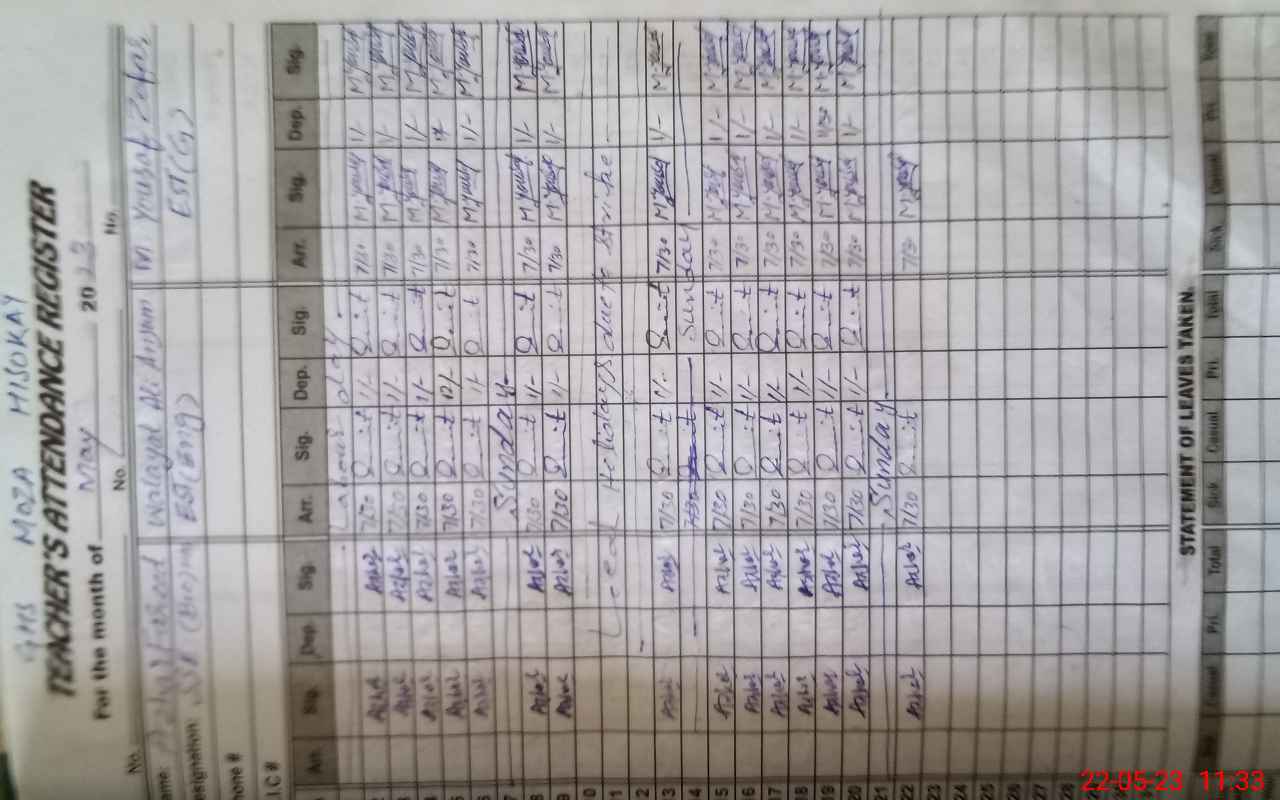 GMS MOZA HISOKAY
TEACHER'S ATTENDANCE REGISTER
For the month of May 2023
No. No. No.
ame: Azhar Fareed Walayat Ali Anjum M. Yousaf Zafar
esignation SST (Bio) EST (Eng) EST (G)
hone #
I.C #
Arr. Sig. Dep. Sig. Arr. Sig. Dep. Sig. Arr. Sig. Dep. Sig.
Labour day
Azhar Azhar 7/30 1/- 7/30 M.yousaf 1/- M.yousaf
3 Azhar Azhar 7/30 1/- 7/30 M.yousaf 1/- M.yousaf
Azhar Azhar 7/30 1/- 7/30 M.yousaf 1/- M.yousaf
5 Azhar Azhar 7/30 12/- 7/30 M.yousaf M.yousaf
6 Azhar Azhar 7/30 1/- 7/30 M.yousaf 1/- M.yousaf
7 Sunday
8 Azhar Azhar 7/30 1/- 7/30 M.yousaf 1/- M.yousaf
9 Azhar Azhar 7/30 1/- 7/30 M.yousaf 1/- M.yousaf
0 Local Holidays due to strike
1
2
3 Azhar Azhar 7/30 1/- 7/30 M.yousaf 1/- M.yousaf
4 Sunday
15 Azhar Azhar 7/30 1/- 7/30 M.yousaf 1/- M.yousaf
16 Azhar Azhar 7/30 1/- 7/30 M.yousaf 1/- M.yousaf
17 Azhar Azhar 7/30 1/- 7/30 M.yousaf 1/- M.yousaf
18 Azhar Azhar 7/30 1/- 7/30 M.yousaf 1/- M.yousaf
19 Azhar Azhar 7/30 1/- 7/30 M.yousaf M.yousaf
20 Azhar Azhar 7/30 1/- 7/30 M.yousaf 1/- M.yousaf
21 Sunday
22 Azhar Azhar 7/30 7/30 M.yousaf
23
24
25
26
27
28
STATEMENT OF LEAVES TAKEN
Casual Pri. Total Sick Casual Pri. Total Sick Casual Pri. Total
22-05-23 11:33